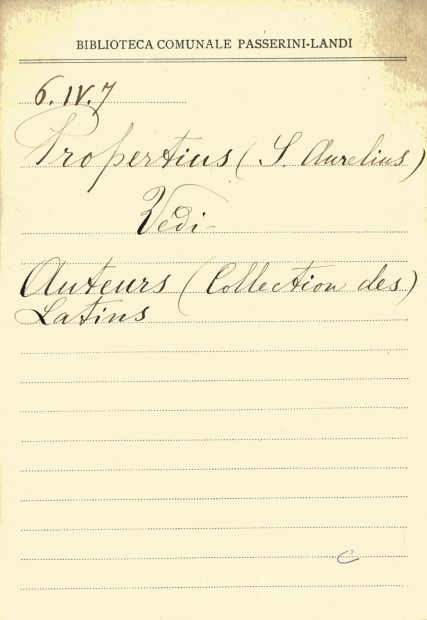 BIBLIOTECA COMUNALE PASSERINI-LANDI
6. IV. 7
Propertius (S. Aurelius)
Vedi -
Auteurs (Collection des)
Latins
C